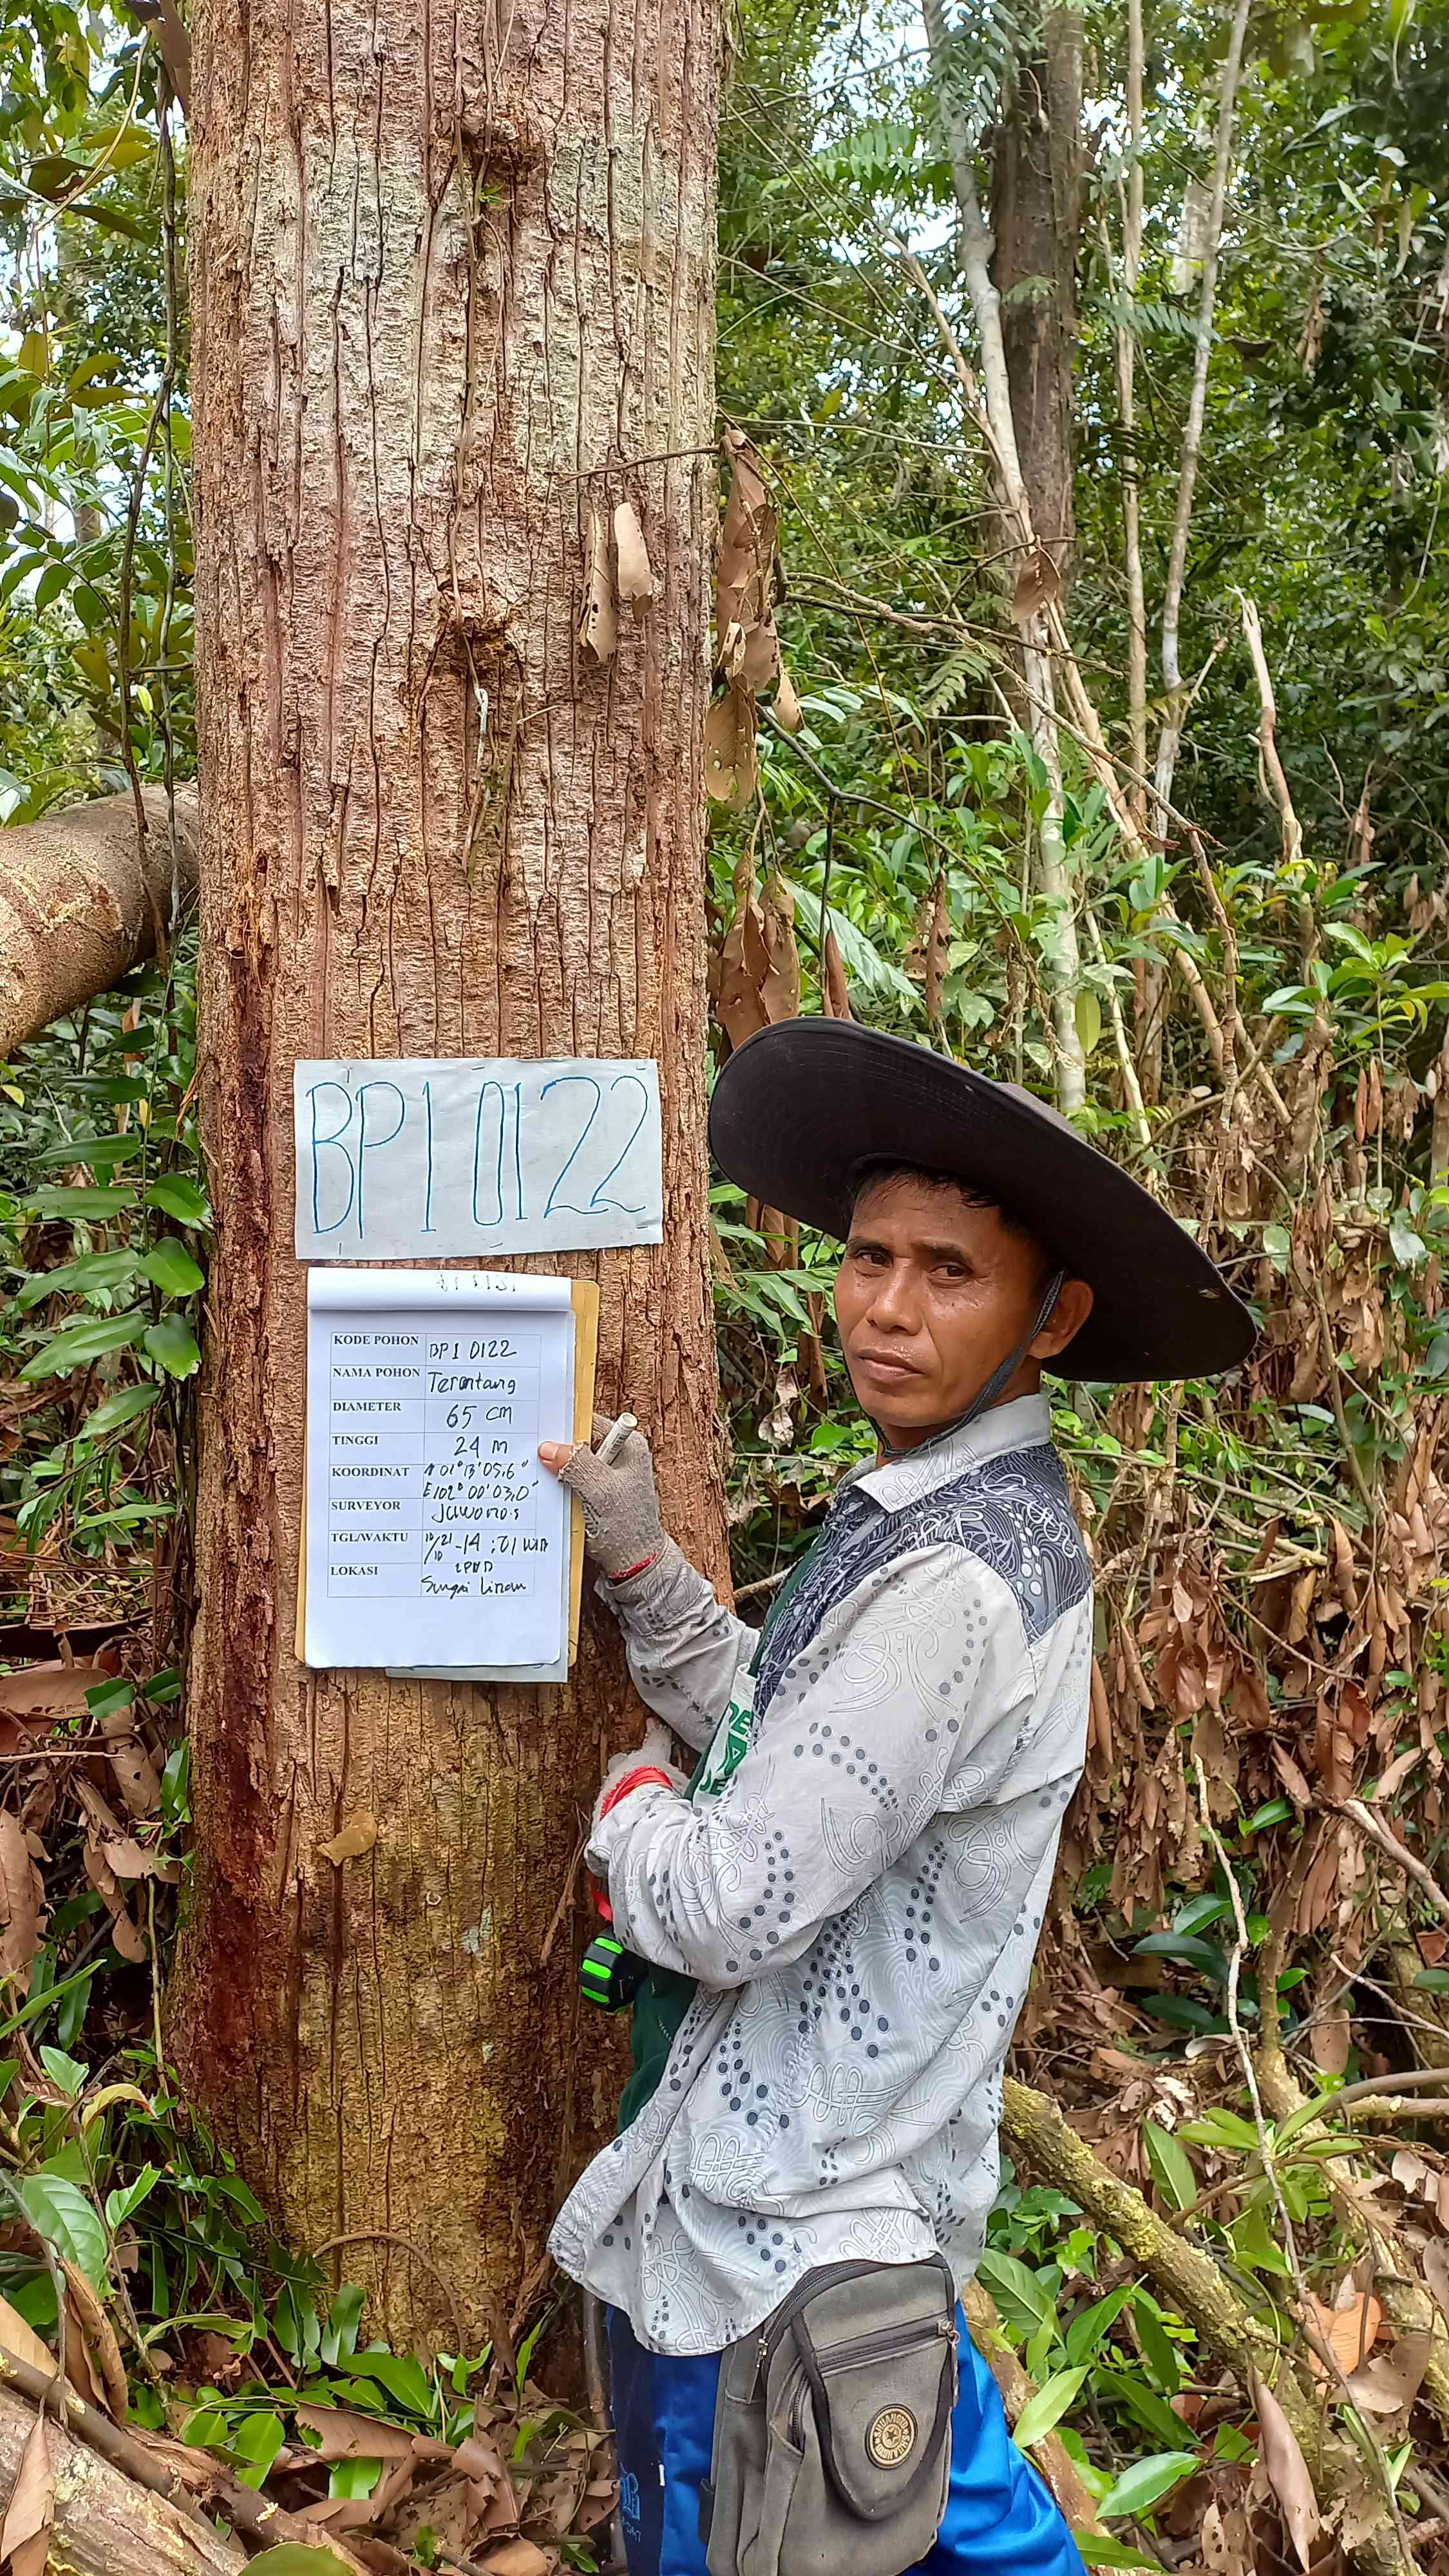 BP1 0122
KODE POHON BP1 0122
NAMA POHON Terentang
DIAMETER 65 cm
TINGGI 24 m
KOORDINAT N 01°13'05,6"
E102° 00'03,0"
SURVEYOR
TGL/WAKTU 10/21 -14:01 WIB
10
LOKASI LPHD
Sungai Linau